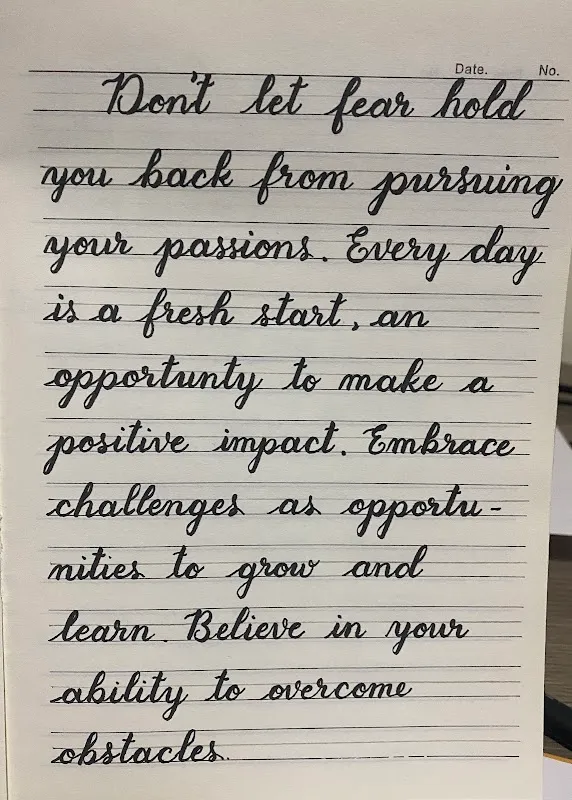 Date. No.
Don't let fear hold
you back from pursuing
your passions. Every day
is a fresh start, an
opportunty to make a
positive impact. Embrace
challenges as opportu-
nities to grow and
learn. Believe in your
ability to overcome
obstacles.